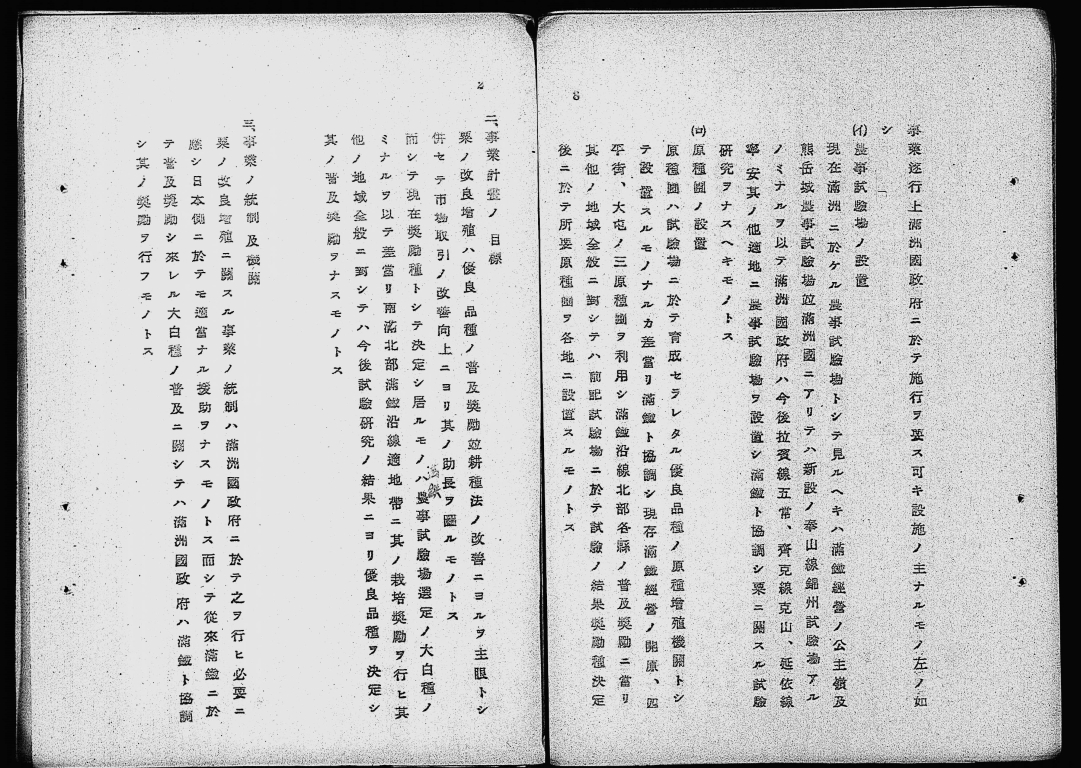 2
二、事業計畫ノ目標
粟ノ改良增殖ハ優良品種ノ普及奬勵竝耕種法ノ改善ニヨルヲ主眼トシ
併セテ市場取引ノ改善向上ニヨリ其ノ助長ヲ圖ルモノトス
而シテ現在奬勵種トシテ決定シ居ルモノハ滿鐵農事試驗場選定ノ大白種ノ
ミナルヲ以テ差當リ南滿北部滿鐵沿線適地帶ニ其ノ栽培奬勵ヲ行ヒ其
他ノ地域全般ニ對シテハ今後試驗研究ノ結果ニヨリ優良品種ヲ決定シ
其ノ普及奬勵ヲナスモノトス
三、事業ノ統制及機關
粟ノ改良增殖ニ關スル事業ノ統制ハ滿洲國政府ニ於テ之ヲ行ヒ必要ニ
應シ日本側ニ於テモ適當ナル援助ヲナスモノトス而シテ從來滿鐵ニ於
テ普及奬勵シ來レル大白種ノ普及ニ關シテハ滿洲國政府ハ滿鐵ト協調
シ其ノ奬勵ヲ行フモノトス
3
事業遂行上滿洲國政府ニ於テ施行ヲ要ス可キ設施ノ主ナルモノ左ノ如
シ
(イ)農事試驗場ノ設置
現在滿洲ニ於ケル農事試驗場トシテ見ルヘキハ滿鐵經營ノ公主嶺及
熊岳城農事試驗場竝滿洲國ニアリテハ新設ノ奉山線錦州試驗場アル
ノミナルヲ以テ滿洲國政府ハ今後拉賓線五常、齊克線克山、延依線
寧安其ノ他適地ニ農事試驗場ヲ設置シ滿鐵ト協調シ粟ニ關スル試驗
研究ヲナスヘキモノトス
(ロ)原種圃ノ設置
原種圃ハ試驗場ニ於テ育成セラレタル優良品種ノ原種增殖機關トシ
テ設置スルモノナルカ差當リ滿鐵ト協調シ現存滿鐵經營ノ開原、四
平街、大屯ノ三原種圃ヲ利用シ滿鐵沿線北部各縣ノ普及奬勵ニ當リ
其他ノ地域全般ニ對シテハ前記試驗場ニ於テ試驗ノ結果奬勵種決定
後ニ於テ所要原種圃ヲ各地ニ設置スルモノトス